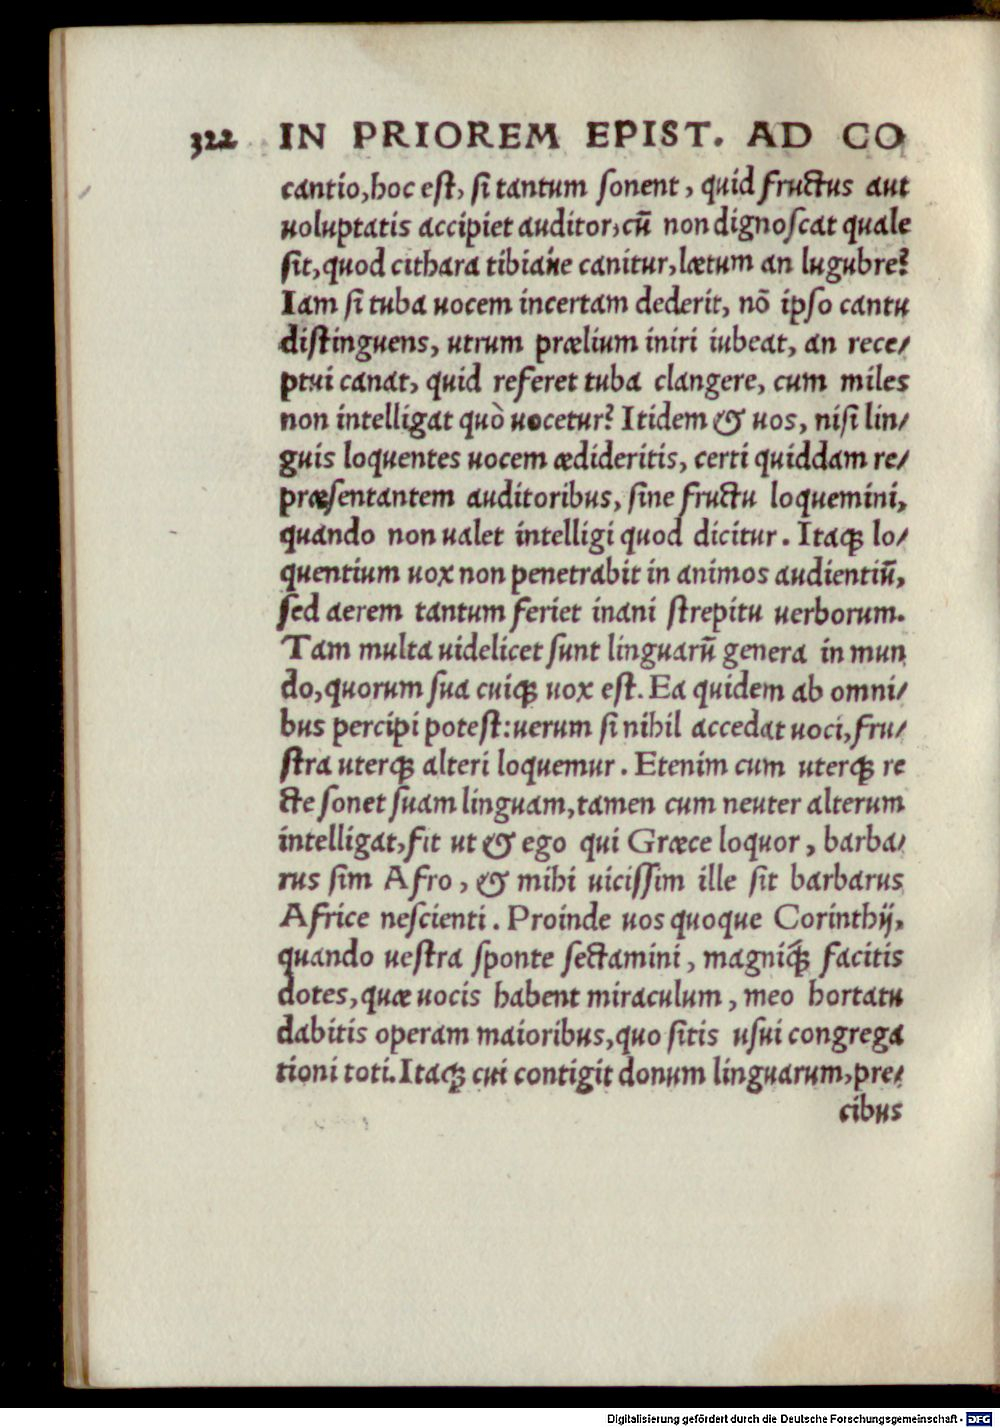 322 IN PRIOREM EPIST. AD CO
cantio, hoc est, si tantum sonent, quid fructus aut
uoluptatis accipiet auditor, cū non dignoscat quale
sit, quod cithara tibiáue canitur, lætum an lugubre?
Iam si tuba uocem incertam dederit, nō ipso cantu
distinguens, utrum prælium iniri iubeat, an rece/
ptui canat, quid referet tuba clangere, cum miles
non intelligat quò uocetur? Itidem & uos, nisi lin/
guis loquentes uocem ædideritis, certi quiddam re/
præsentantem auditoribus, sine fructu loquemini,
quando non ualet intelligi quod dicitur. Itaqꝫ lo/
quentium uox non penetrabit in animos audientiū,
sed aerem tantum feriet inani strepitu uerborum.
Tam multa uidelicet sunt linguarū genera in mun
do, quorum sua cuiqꝫ uox est. Ea quidem ab omni/
bus percipi potest: uerum si nihil accedat uoci, fru/
stra uterqꝫ alteri loquemur. Etenim cum uterqꝫ re
cte sonet suam linguam, tamen cum neuter alterum
intelligat, fit ut & ego qui Græce loquor, barba/
rus sim Afro, & mihi uicissim ille sit barbarus
Africe nescienti. Proinde uos quoque Corinthij,
quando uestra sponte sectamini, magniq́ꝫ facitis
dotes, quæ uocis habent miraculum, meo hortatu
dabitis operam maioribus, quo sitis usui congrega
tioni toti. Itaqꝫ cui contigit donum linguarum, pre/
cibus
Digitalisierung gefördert durch die Deutsche Forschungsgemeinschaft - DFG